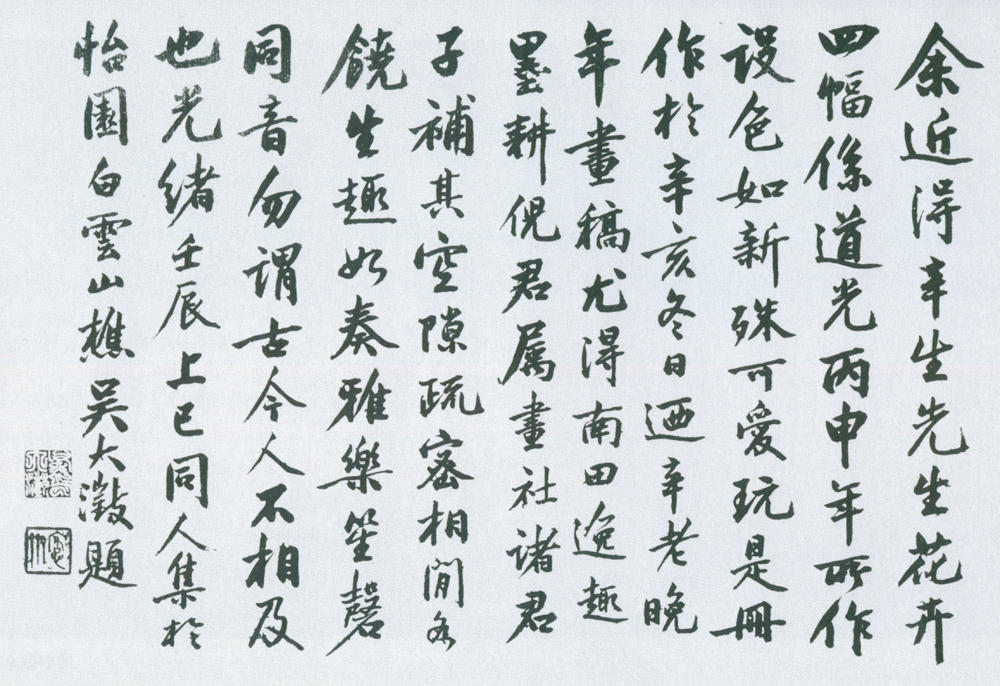 余近得辛生先生花卉
四幅係道光丙申年所作
設色如新殊可愛玩是冊
作於辛亥冬日迺辛老晚
年畫稿尤得南田逸趣
墨耕倪君属畫社諸君
子補其空隙疏密相間各
饒生趣如奏雅樂笙磬
同音勿謂古今人不相及
也光緒壬辰上巳同人集於
怡園白雲山樵吳大澂題